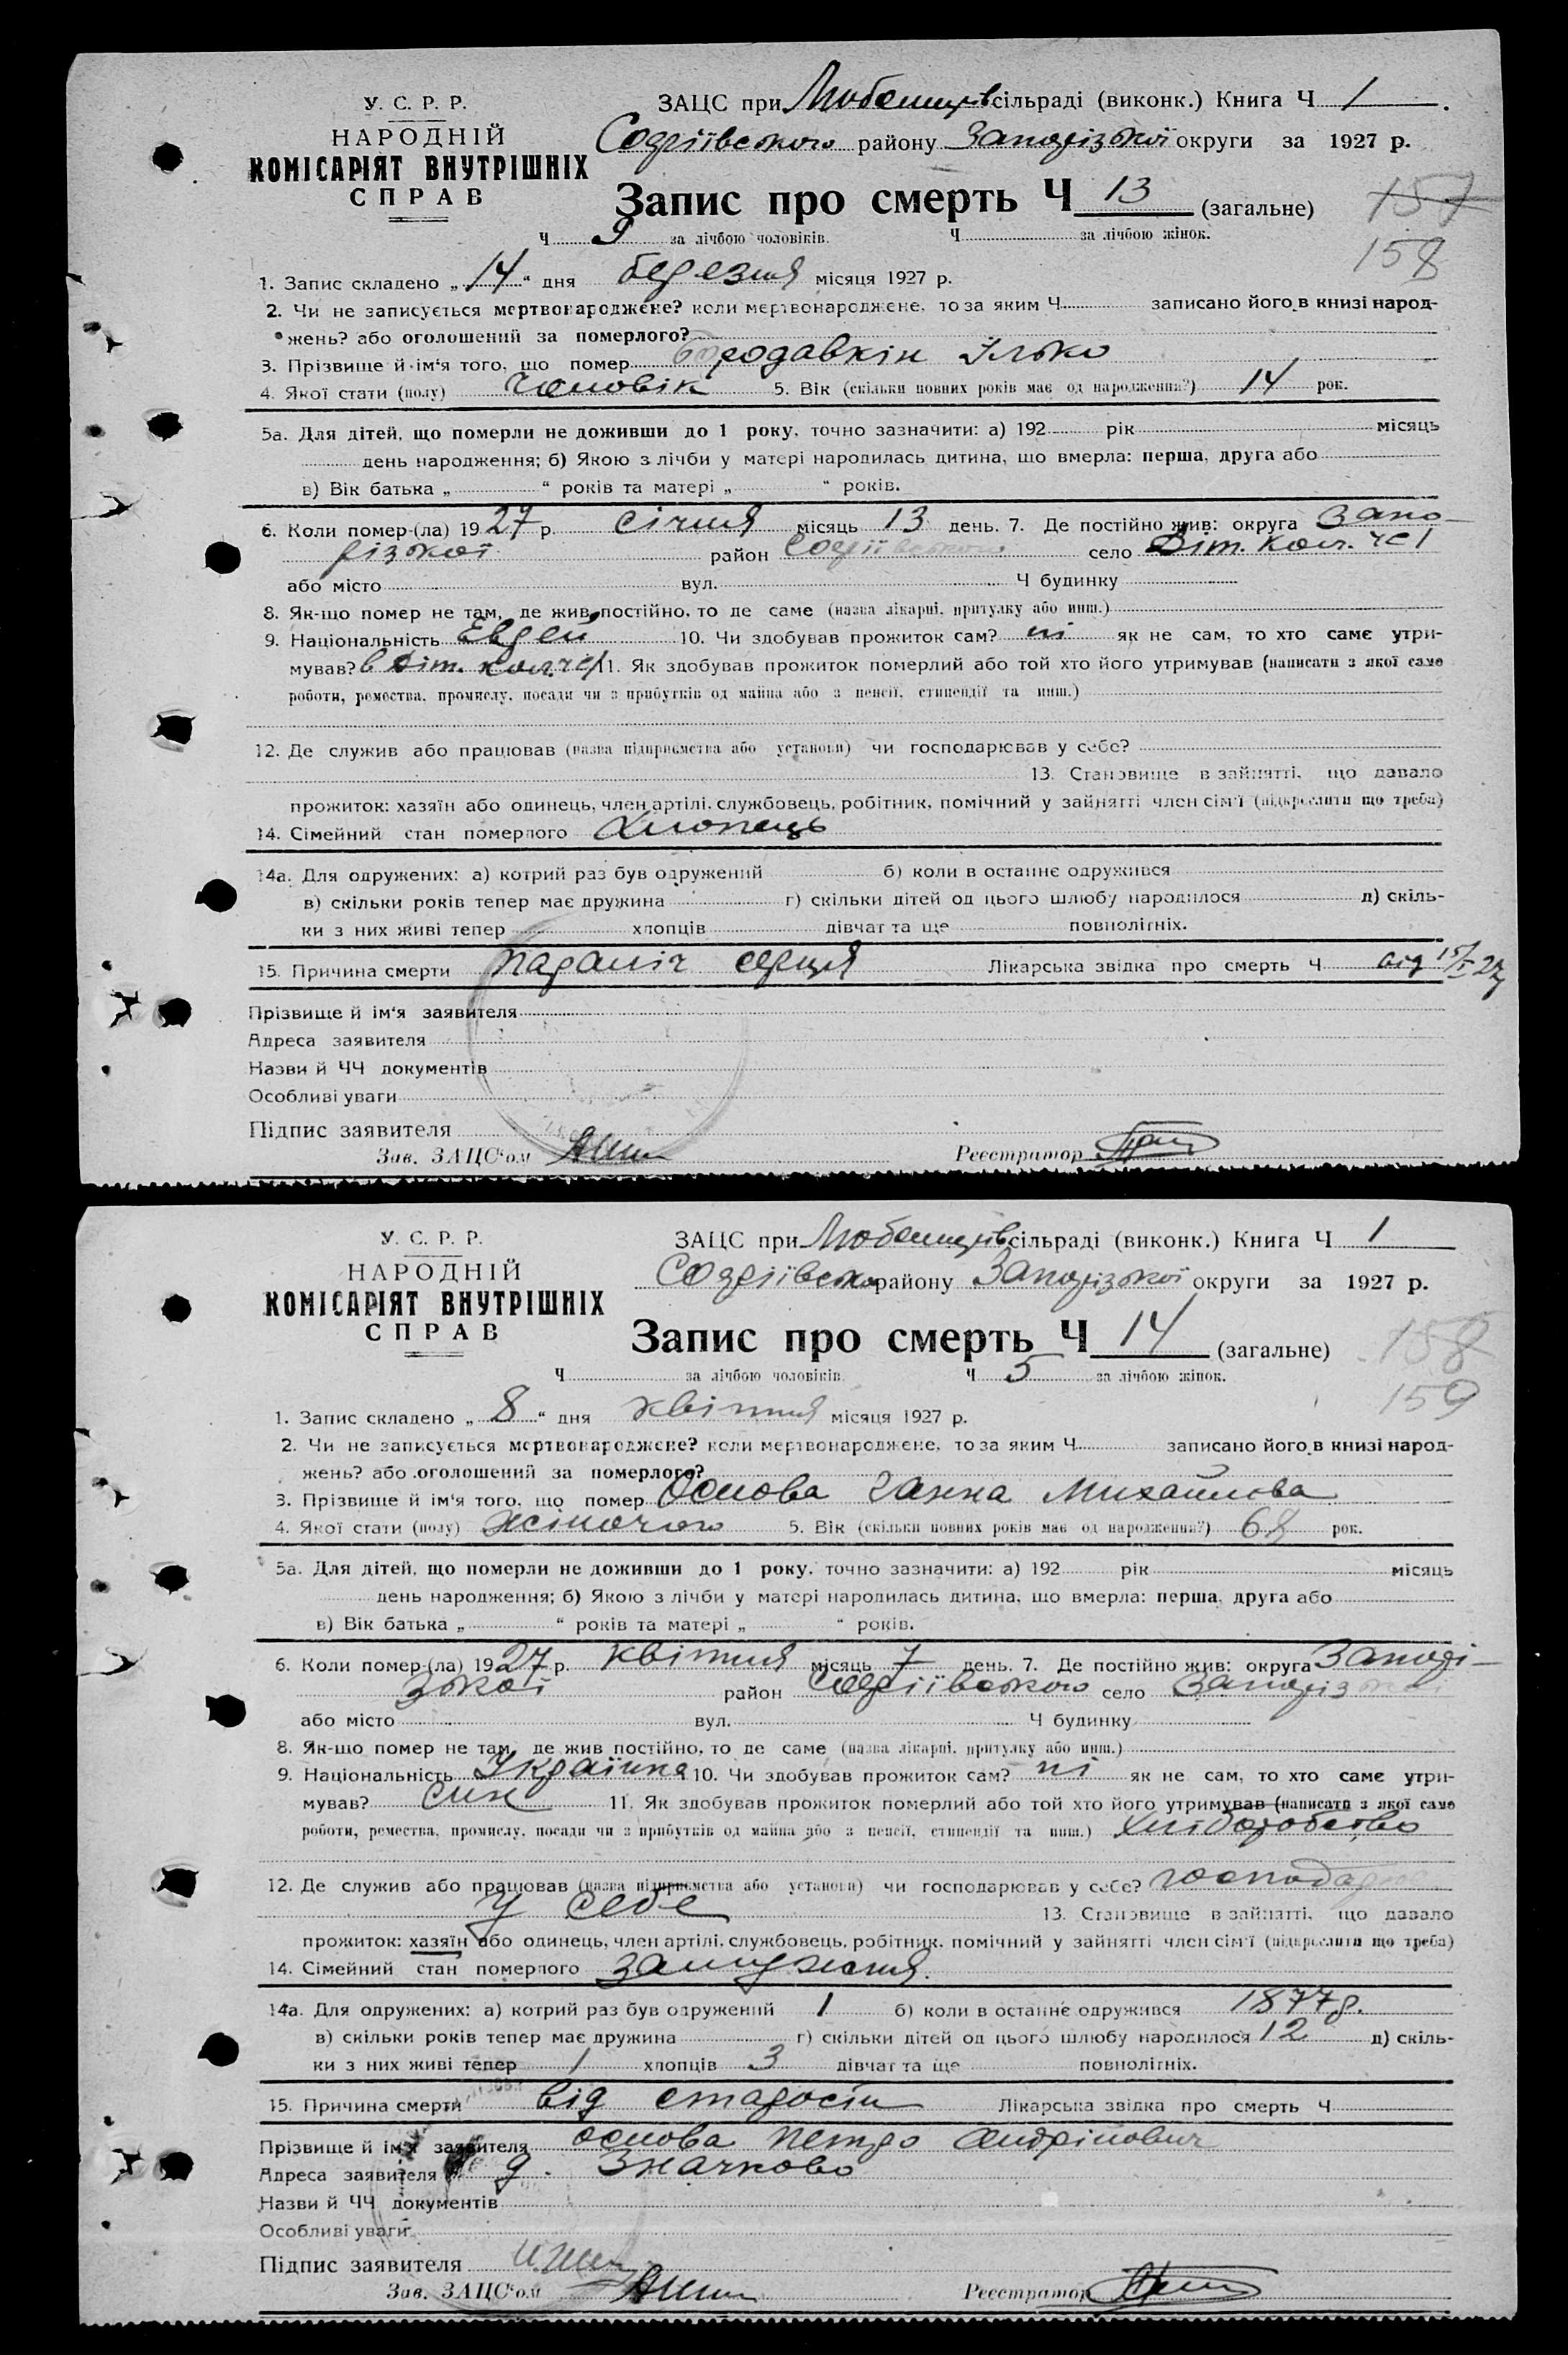 У. С. Р. Р.
НАРОДНІЙ
КОМІСАРІЯТ ВНУТРІШНІХ
СПРАВ
ЗАЦС при сільраді (виконк.) Книга Ч 1
району Запорізької округи за 1927 р.
Запис про смерть Ч 13 (загальне)
157
158
Ч 9 за лічбою чоловіків. Ч за лічбою жінок.
1. Запис складено „ 14 “ дня березня місяця 1927 р.
2. Чи не записується мертвонароджене? коли мертвонароджене, то за яким Ч записано його в книзі народ-
жень? або оголошений за померлого?
3. Прізвище й ім'я того, що помер Бородавкін Ілько
4. Якої стати (полу) чоловік 5. Вік (скільки повних років має од народження?) 14 рок.
5а. Для дітей, що померли не доживши до 1 року, точно зазначити: а) 192 рік місяць
день народження; б) Якою з лічби у матері народилась дитина, що вмерла: перша, друга або
в) Вік батька „ “ років та матері „ “ років.
6. Коли помер-(ла) 1927 р. січня місяць 13 день. 7. Де постійно жив: округа Запо-
різької район село Діт. кол. ч 1
або місто вул. Ч будинку
8. Як-що помер не там, де жив постійно, то де саме (назва лікарні, притулку або инш.)
9. Національність Еврей 10. Чи здобував прожиток сам? ні як не сам, то хто саме утри-
мував? в Діт. кол. ч 1 11. Як здобував прожиток померлий або той хто його утримував (написати з якої саме
роботи, ремества, промислу, посади чи з прибутків од майна або з пенсії, стипендії та инш.)
12. Де служив або працював (назва підприємства або установи) чи господарював у себе?
13. Становище в зайнятті, що давало
прожиток: хазяїн або одинець, член артілі, службовець, робітник, помічний у зайнятті член сім'ї (підкреслити що треба)
14. Сімейний стан померлого Хлопець
14а. Для одружених: а) котрий раз був одружений б) коли в останнє одружився
в) скільки років тепер має дружина г) скільки дітей од цього шлюбу народилося д) скіль-
ки з них живі тепер хлопців дівчат та ще повнолітніх.
15. Причина смерти параліч серця Лікарська звідка про смерть Ч від 15/I 27
Прізвище й ім'я заявителя
Адреса заявителя
Назви й ЧЧ документів
Особливі уваги
Підпис заявителя
Зав. ЗАЦС'ом Реєстратор
У. С. Р. Р.
НАРОДНІЙ
КОМІСАРІЯТ ВНУТРІШНІХ
СПРАВ
ЗАЦС при сільраді (виконк.) Книга Ч 1
району Запорізької округи за 1927 р.
Запис про смерть Ч 14 (загальне)
158
159
Ч за лічбою чоловіків. Ч 5 за лічбою жінок.
1. Запис складено „ 8 “ дня квітня місяця 1927 р.
2. Чи не записується мертвонароджене? коли мертвонароджене, то за яким Ч записано його в книзі народ-
жень? або оголошений за померлого?
3. Прізвище й ім'я того, що помер Основа Ганна Михайлова
4. Якої стати (полу) жіночого 5. Вік (скільки повних років має од народження?) 68 рок.
5а. Для дітей, що померли не доживши до 1 року, точно зазначити: а) 192 рік місяць
день народження; б) Якою з лічби у матері народилась дитина, що вмерла: перша, друга або
в) Вік батька „ “ років та матері „ “ років.
6. Коли помер-(ла) 1927 р. квітня місяць 7 день. 7. Де постійно жив: округа Запорі-
зької район село
або місто вул. Ч будинку
8. Як-що помер не там, де жив постійно, то де саме (назва лікарні, притулку або инш.)
9. Національність Українка 10. Чи здобував прожиток сам? ні як не сам, то хто саме утри-
мував? син 11. Як здобував прожиток померлий або той хто його утримував (написати з якої саме
роботи, ремества, промислу, посади чи з прибутків од майна або з пенсії, стипендії та инш.) Хліборобство
12. Де служив або працював (назва підприємства або установи) чи господарював у себе?
у себе 13. Становище в зайнятті, що давало
прожиток: хазяїн або одинець, член артілі, службовець, робітник, помічний у зайнятті член сім'ї (підкреслити що треба)
14. Сімейний стан померлого замужня.
14а. Для одружених: а) котрий раз був одружений 1 б) коли в останнє одружився 1877 р.
в) скільки років тепер має дружина г) скільки дітей од цього шлюбу народилося 12 д) скіль-
ки з них живі тепер 1 хлопців 3 дівчат та ще повнолітніх.
15. Причина смерти від старости Лікарська звідка про смерть Ч
Прізвище й ім'я заявителя Основа Петро Андрійович
Адреса заявителя д. Значково
Назви й ЧЧ документів
Особливі уваги
Підпис заявителя
Зав. ЗАЦС'ом Реєстратор